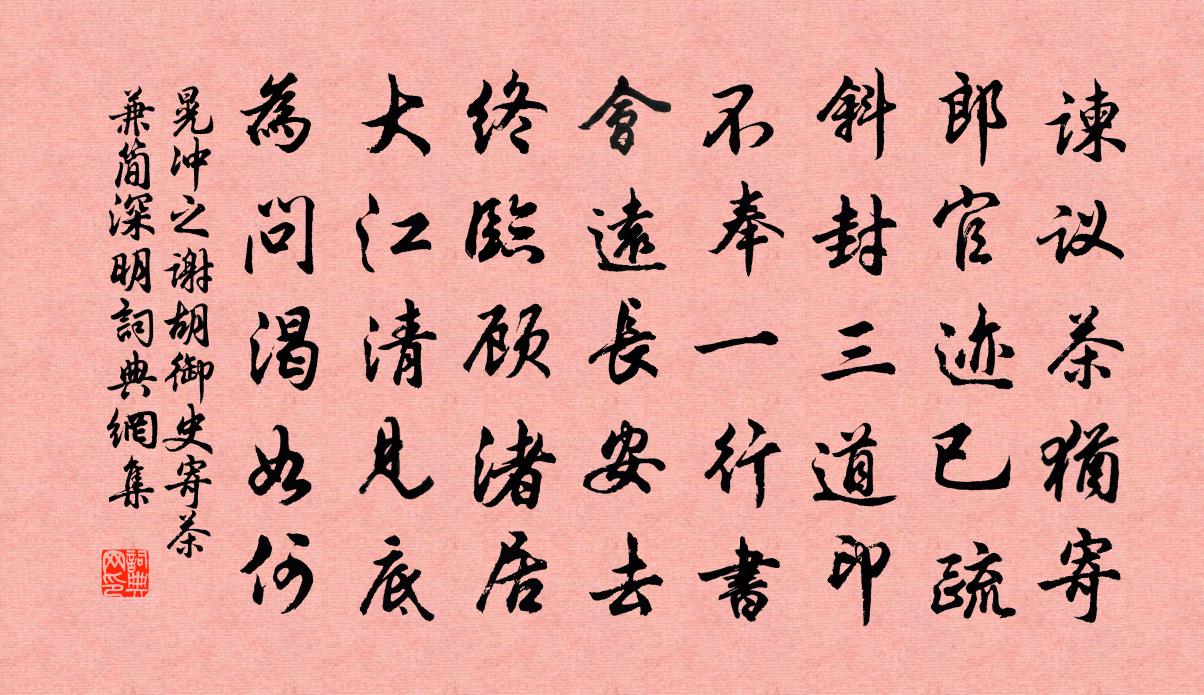 谏议茶猶寄
郎官迹已疏
斜封三道印
不奉一行書
會遠長安去
终臨顾渚居
大江清見底
為問渴如何
晁冲之谢胡御史寄茶
兼简深明詞典網集
詞典網印